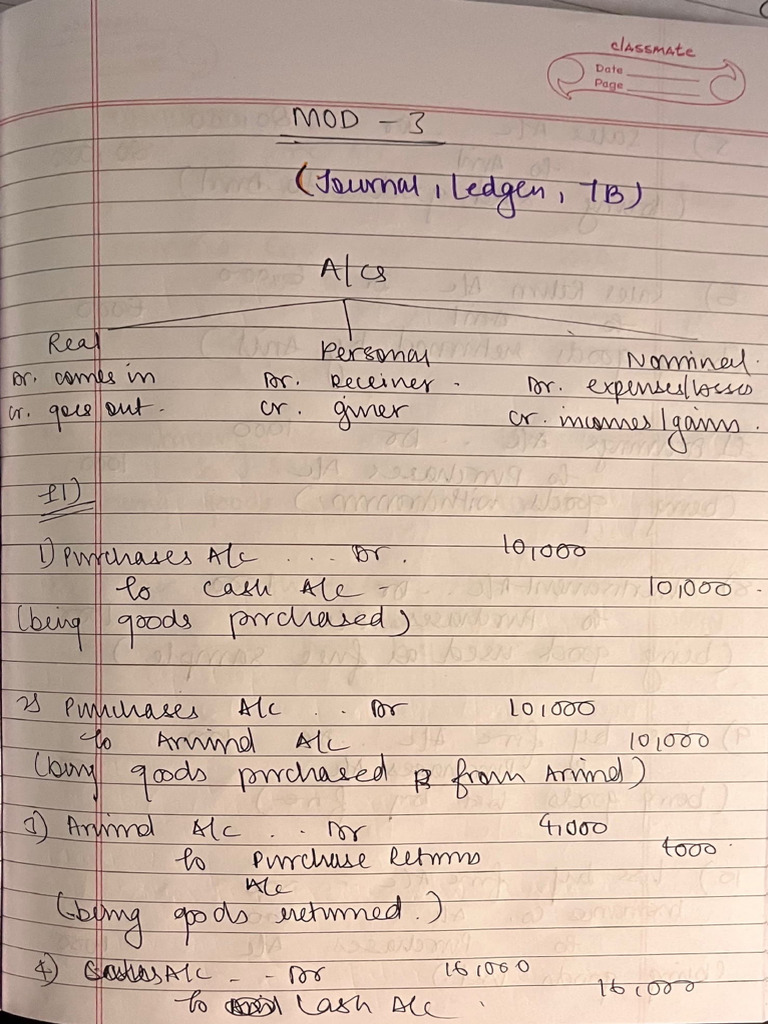 classmate
Date
Page
MOD - 3
(Journal, Ledger, TB)
A/cs
Real Personal Nominal.
Dr. comes in Dr. Receiver. Dr. expenses/losses
cr. goes out. cr. giver cr. incomes/gains.
1) Purchases A/c ... Dr. 10,000
to cash A/c - 10,000.
(being goods purchased)
2) Purchases A/c .. Dr 10,000
to Arvind A/c 10,000
(being goods purchased from Arvind)
3) Arvind A/c .. Dr 4,000
to Purchase Returns 4000.
A/c
(being goods returned.)
4) A/c -- Dr 16,000
to Cash A/c. 16,000